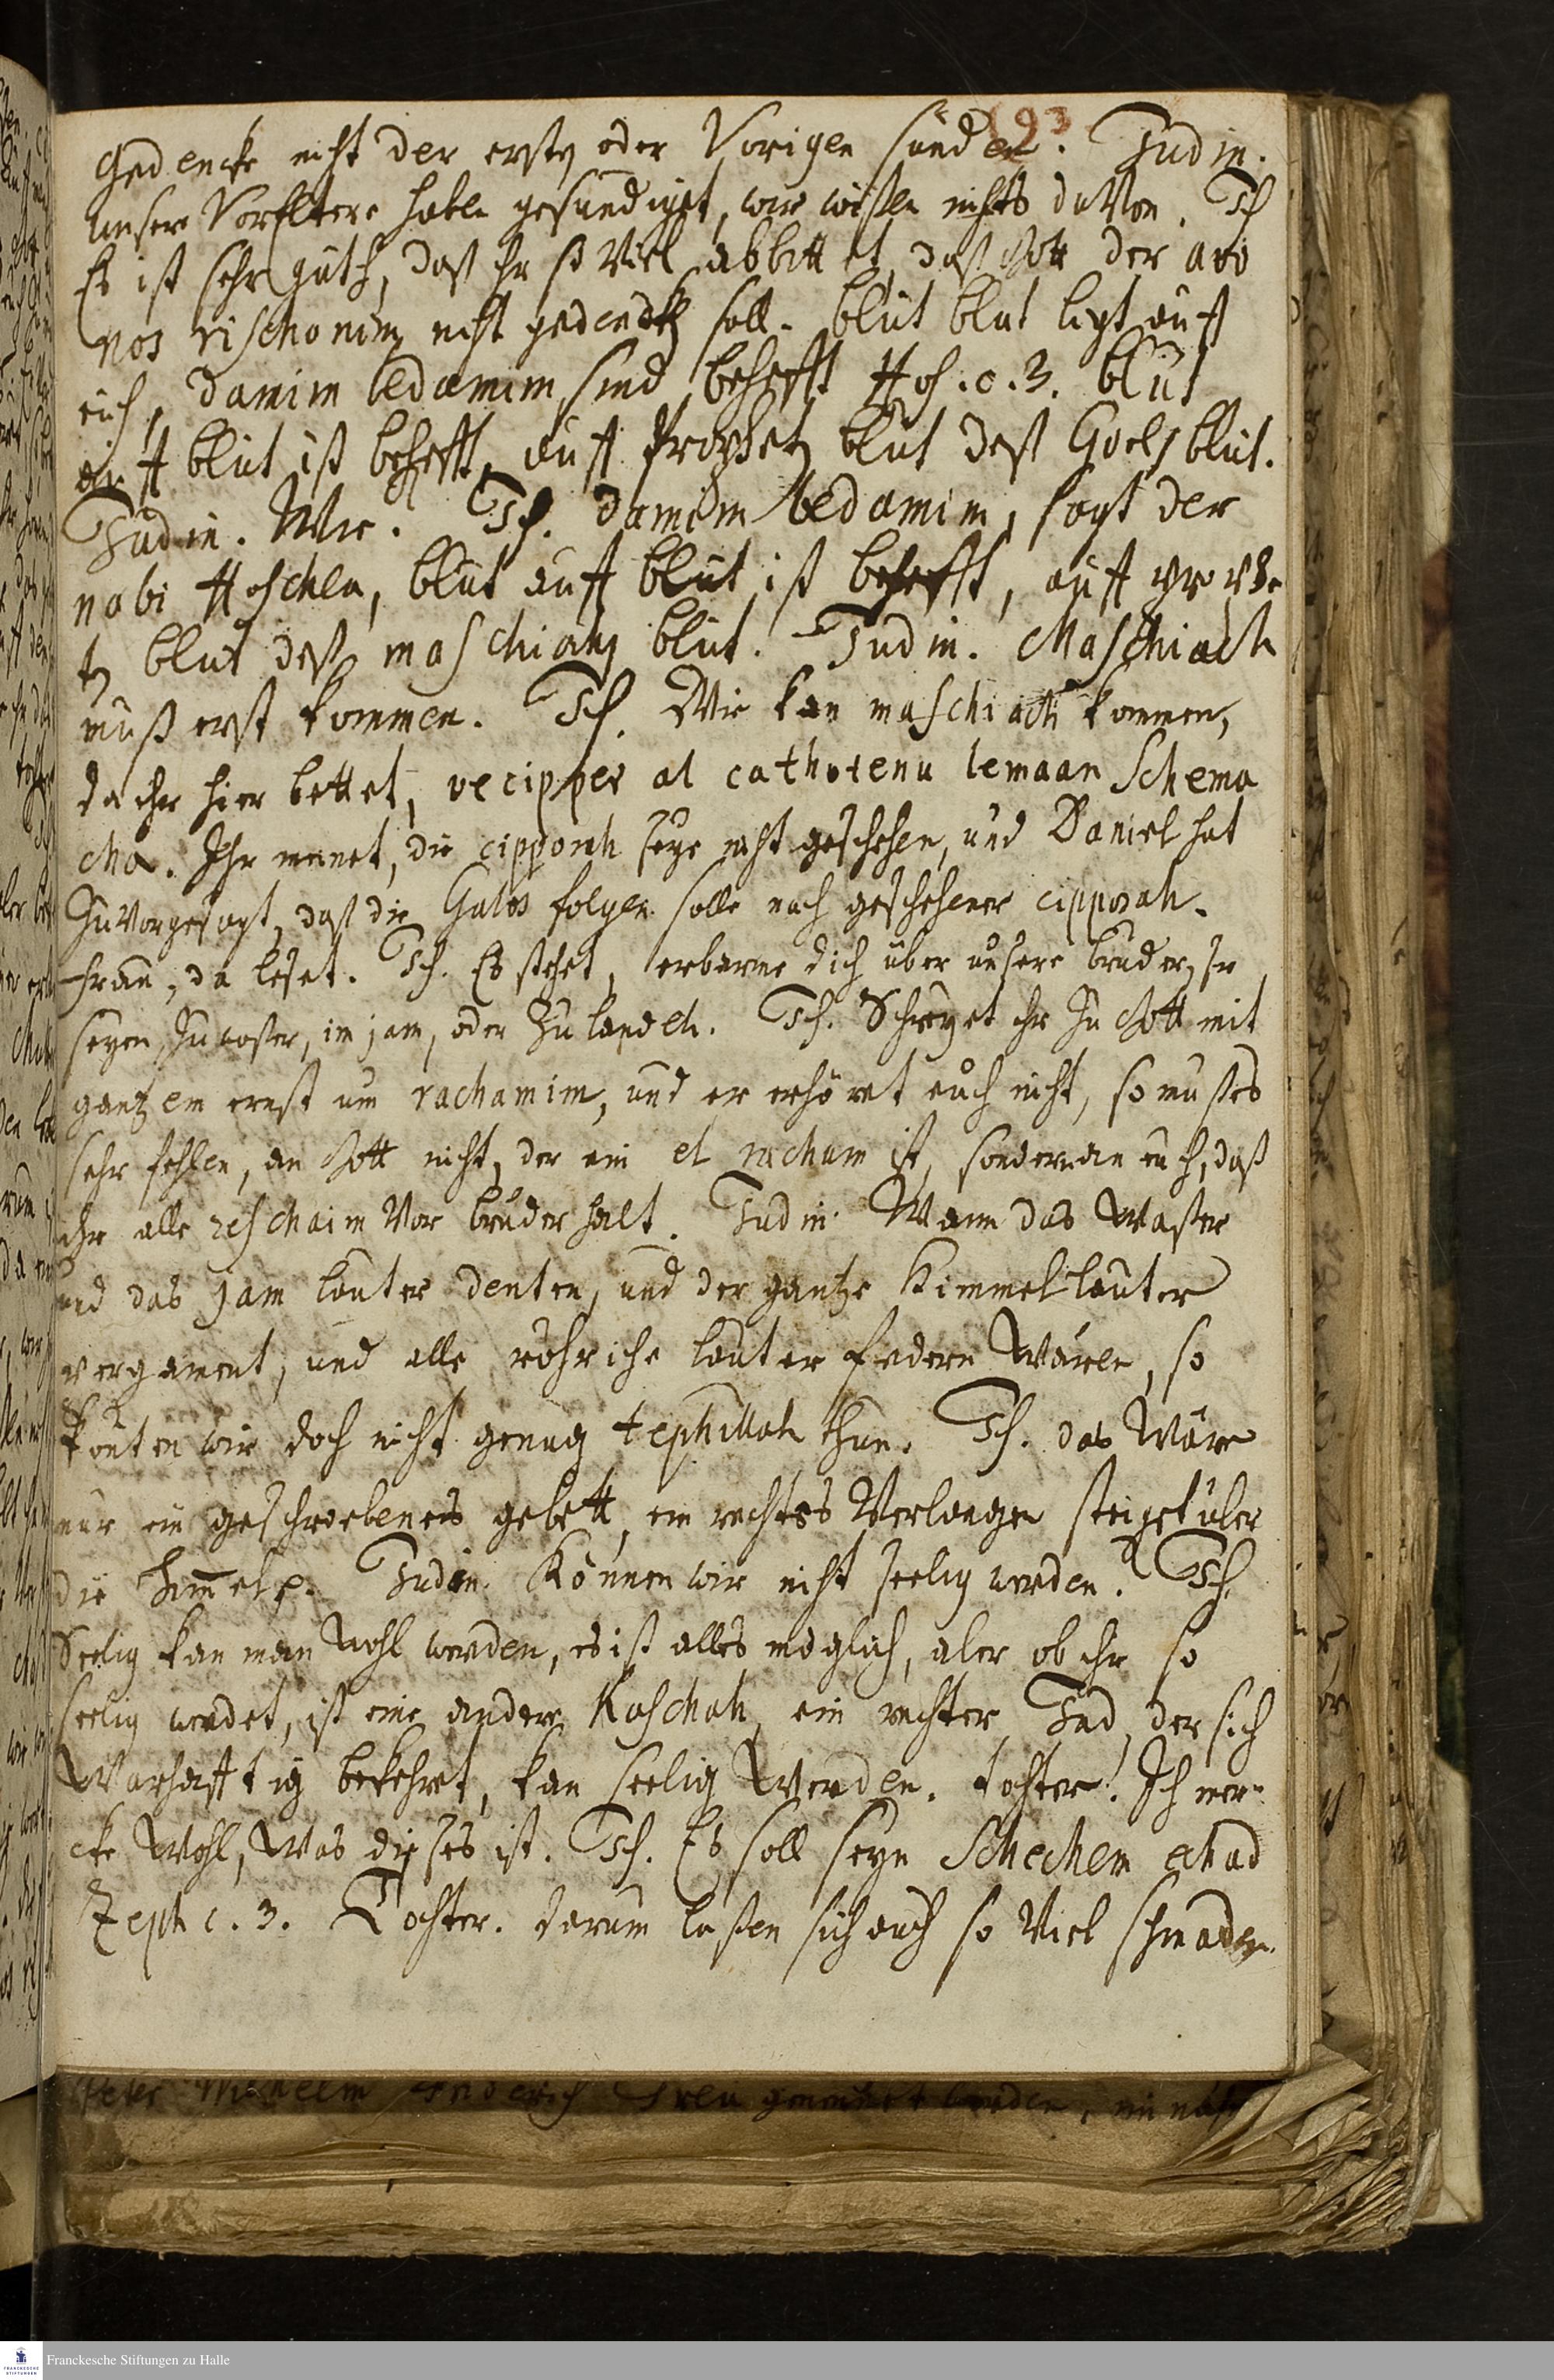 193
Gedencke nicht der ersten oder Vorigen sünden. Judin.
unsere VorEltere haben gesundiget, wir wißen nichts davon. Ich
Es ist sehr guth, daß ihr so viel abbittet, daß Gott der avo
nos rischonim nicht gedencken soll. blut blut ligt auff
euch, damim bedamim sind behefft Hos. c. 3. blut
auff blut ist behefft, auff Propheten blut deß Goels blut.
Judin. Wie? Ich. damim bedamim, sagt der
nabi Hoschea, blut auff blut ist behefft, auff prophe
ten blut deß maschiachs blut. Judin. Maschiach
muß erst kommen. Ich. Wie kan maschiach kommen,
da ihr hier bettet, vecipper al cathotenu lemaan Schema
cha. Ihr meinet, die cipporah seye nicht geschehen, und Daniel hat
Zuvor gesagt, daß die Galos folgen solle nach geschehener cipporah.
Frau, da leset. Ich. Es stehet, erbarme dich über unsere brüder, sie
seyen zu waßer, im jam, oder zu landeh. Ich. Schreyet ihr zu Gott mit
gantzem ernst um rachamim, und er erhöret euch nicht, so muß es
sehr fehlen, an Gott nicht, der ein el rachum ist, sondern an euch, daß
ihr alle reschaim vor brüder halt. Judin. Wann das Waßer
und das jam lauter denten, und der gantze Himmel lauter
pergament, und alle röhriche lauter federn Wären, so
könten wir doch nicht genug tephillah thun. Ich. das Wäre
nur ein geschriebenes gebett, ein rechtes Verlangen steiget über
die Himel p. Judin. Können wir nicht seelig werden? Ich.
Seelig kan man wohl werden, es ist alles möglich, aber ob ihr so
seelig werdet, ist eine andere Kaschah, ein rechter Jud, der sich
Warhafftig bekehret, kan seelig Werden. tochter! Ich mer-
cke Wohl, Was dießes ist. Ich. Es soll seyn Schechem echad
Zeph c. 3. Tochter. darum laßen sich auch so Viel schmaden.
Franckesche Stiftungen zu Halle